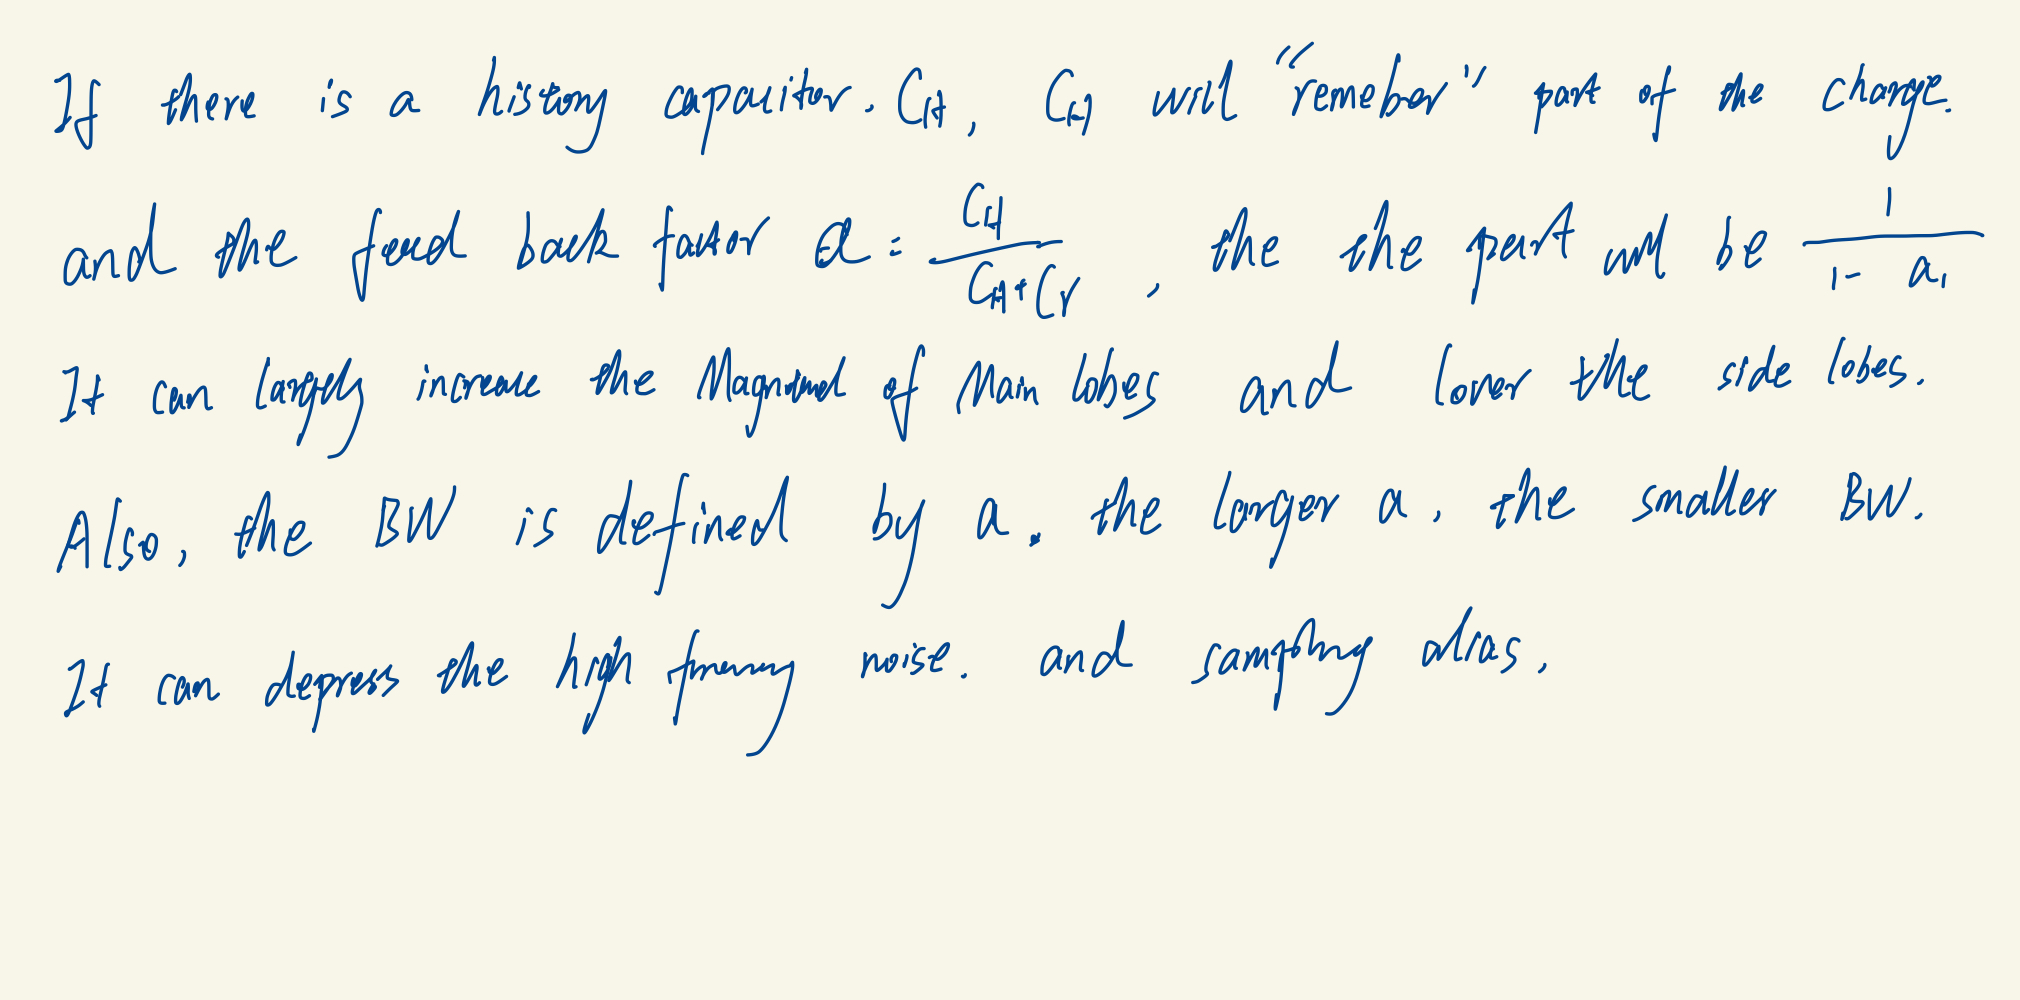 If there is a history capacitor. CH, CH will "remeber" part of the charge.
and the feed back factor a = CH / (CH + Cr), the the part will be 1 / (1 - a,
It can largely increase the Magnitued of Main lobes and lower the side lobes.
Also, the BW is defined by a. the larger a, the smaller BW.
It can depress the high frequency noise. and sampling alias.